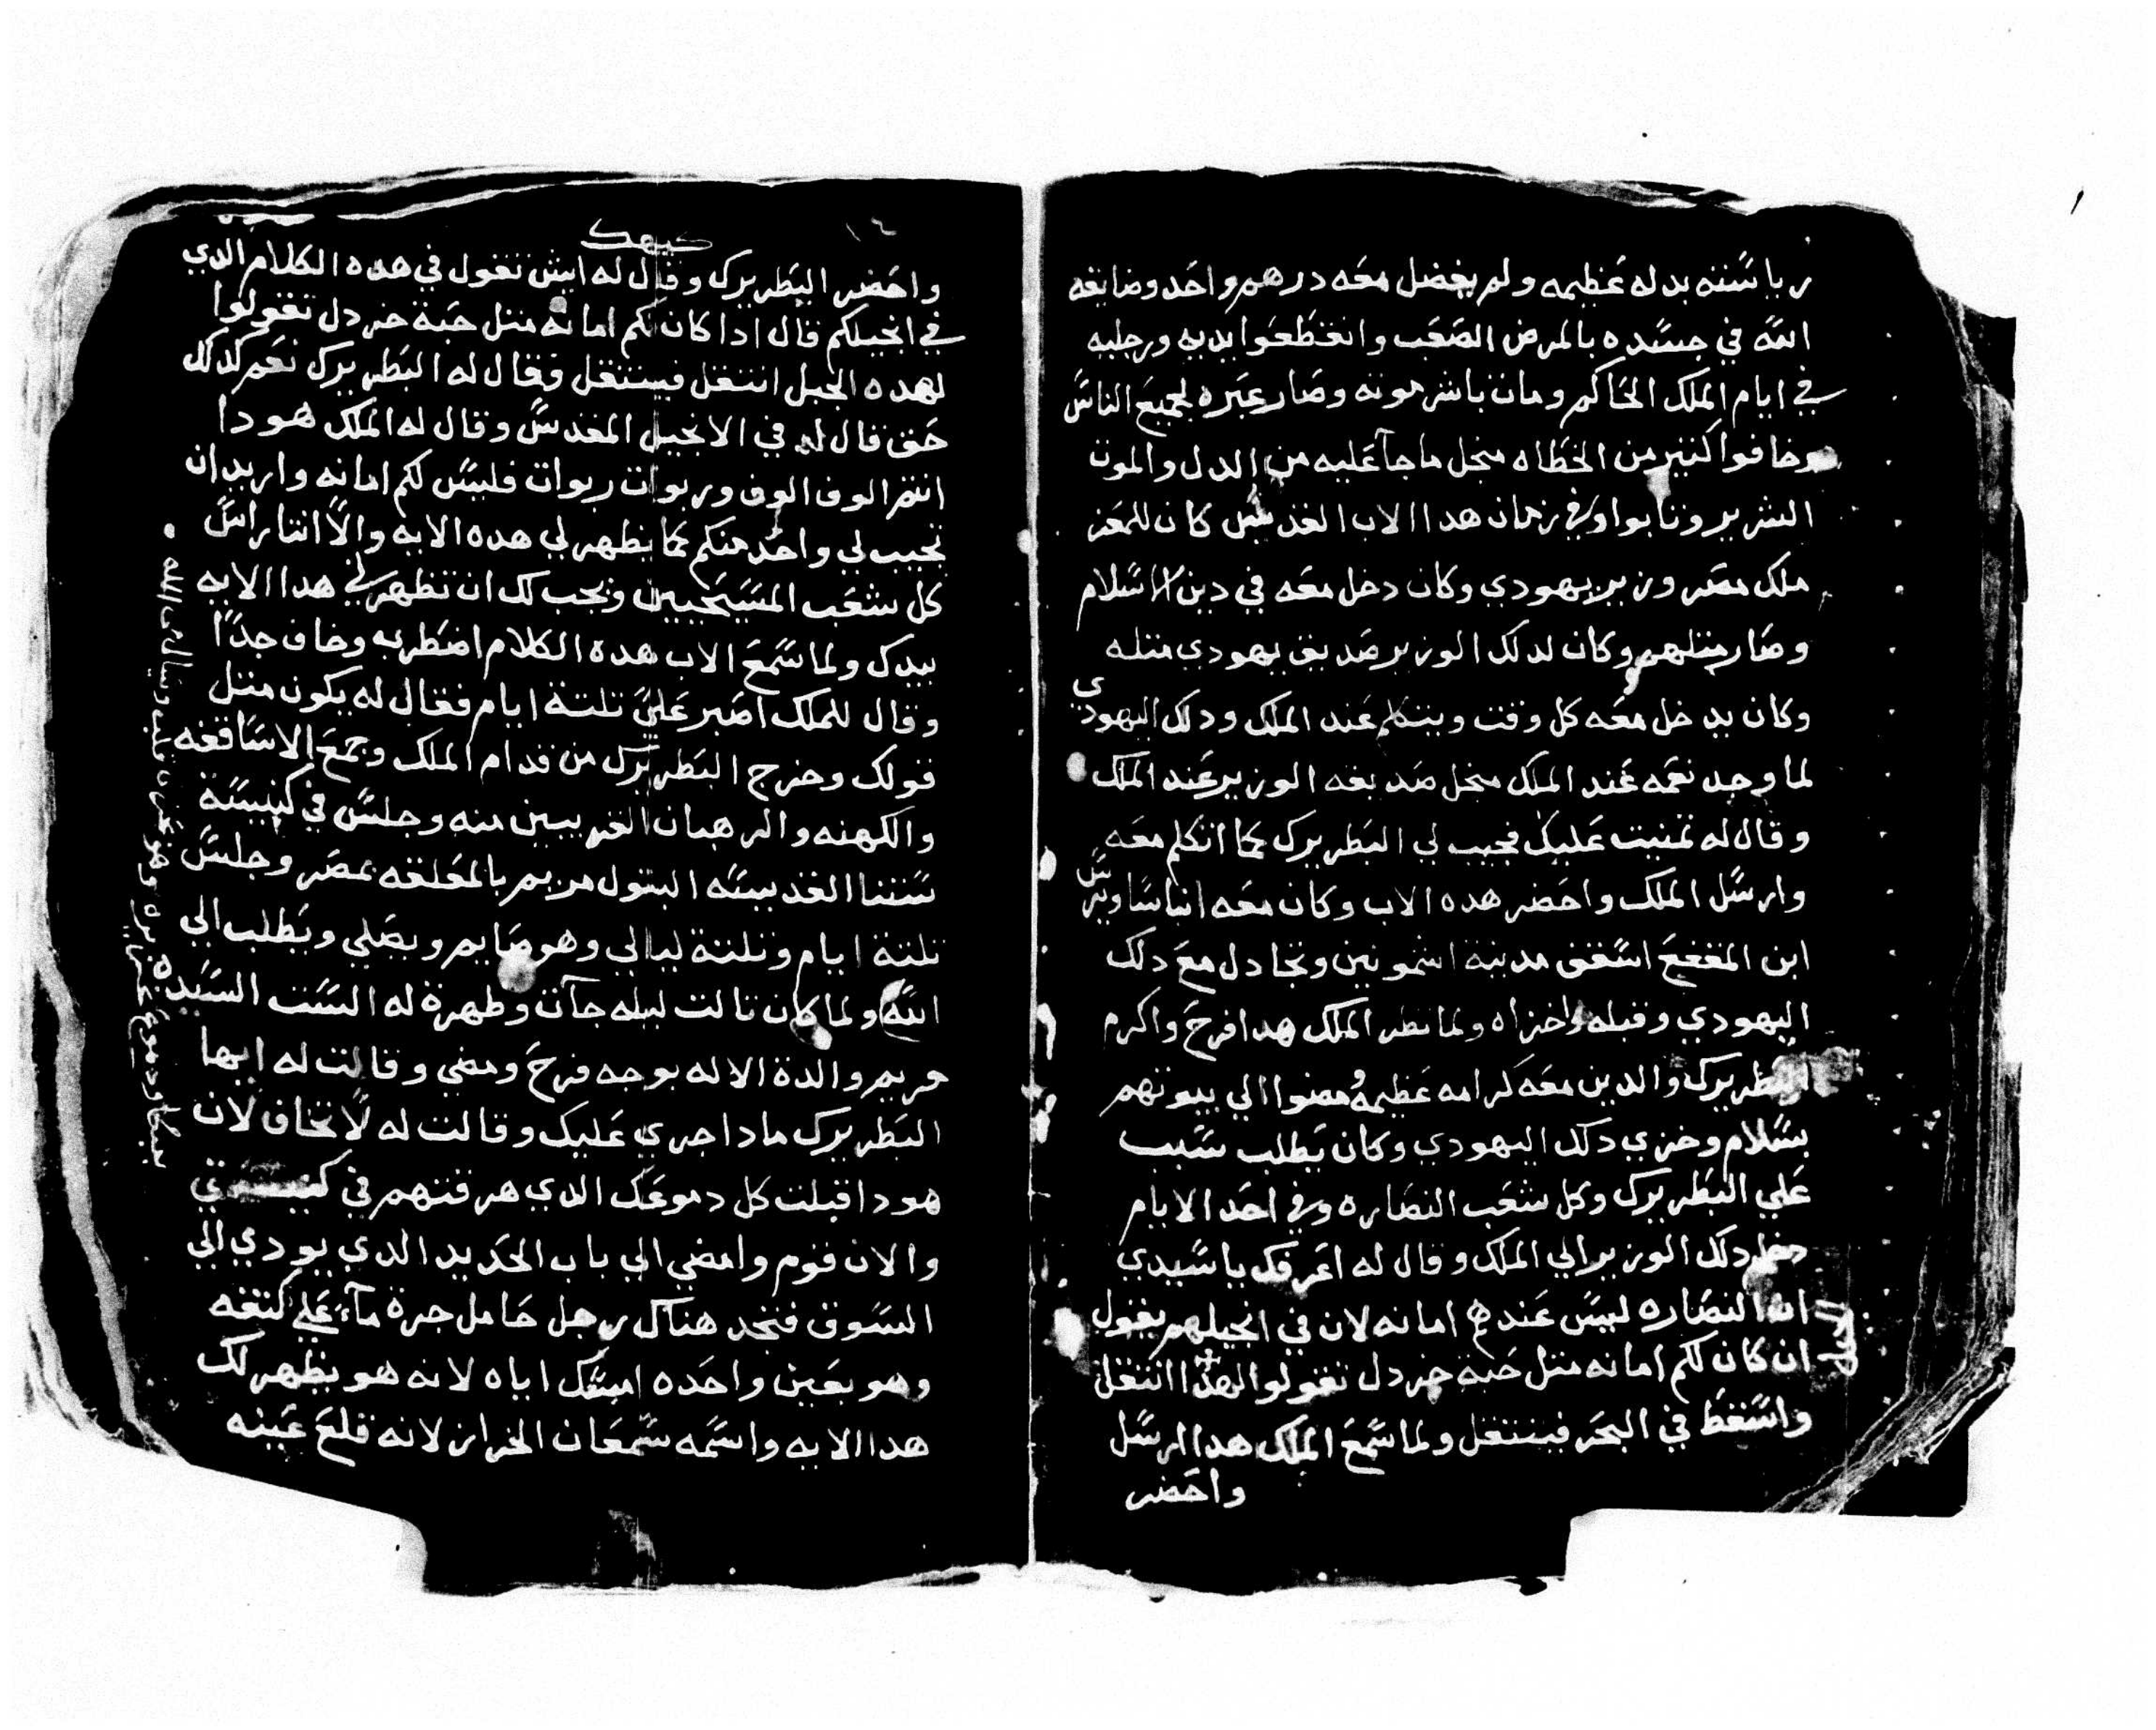 رياسته بدله عظيمه ولم يفضل معه درهم واحد وضايقه
الله في جسده بالمرض الصعب وانقطعوا يديه ورجليه
في ايام الملك الحاكم ومات باشر موته وصار عبره لجميع الناس
وخافوا كتير من الخطاه منجل ما جآ عليه من الدل والموت
الشرير وتابوا وفي زمان هدا الاب القديس كان للمعز
ملك مصر وزير يهودي وكان دخل معه في دين الاسلام
وصار متلهم وكان لدلك الوزير صديق يهودي متله
وكان يدخل معه كل وقت ويتكلم عند الملك ودلك اليهودي
لما وجد نعمه عند الملك منجل صديقه الوزير عند الملك
وقال له تمنيت عليك تجيب لي البطريرك كما اتكلم معه
وارسل الملك واحضر هده الاب وكان معه انبا ساويرس
ابن المقفع اسقف مدينة اشمونين وتجادل مع دلك
اليهودي وقبله واخزاه ولما نظر الملك هدا فرح واكرم
البطريرك والدين معه كرامه عظيمه ومضوا الي بيوتهم
بسلام وخزي دلك اليهودي وكان يطلب سبب
علي البطريرك وكل شعب النصاره وفي احد الايام
دخل دلك الوزير الي الملك وقال له اعرفك يا سيدي
ان النصاره ليس عندهم امانه لان في انجيلهم يقول
ان كان لكم امانه متل حبة خردل تقولوا لهدا انتقل
واسقط في البحر فينتقل ولما سمع الملك هدا ارسل
واحضر
كيهك
واحضر البطريرك وقال له ايش تقول في هده الكلام الدي
في انجيلكم قال ادا كان لكم امانه متل حبة خردل تقولوا
لهده الجبل انتقل فينتقل فقال له البطريرك نعم كدلك
حق قال في الانجيل المقدس وقال له الملك هودا
انتم الوف الوف وربوات ربوات فليس لكم امانه واريد ان
تجيب لي واحد منكم كما يظهر لي هده الايه والا انتا راس
كل شعب المسيحيين ويجب لك ان تظهر لي هدا الايه
بيدك ولما سمع الاب هده الكلام اضطرب وخاف جدا
وقال للملك اصبر علي تلتة ايام فقال له يكون متل
قولك وخرج البطريرك من قدام الملك وجمع الاساقفه
والكهنه والرهبان القريبين منه وجلس في كنيسة
ستنا القديسه البتول مريم بالمعلقه بمصر وجلس
تلتة ايام وتلتة ليالي وهو صايم ويصلي ويطلب الي
الله ولما كان تالت ليله جآت وظهرة له الست السيده
مريم والدة الاله بوجه فرح ومضي وقالت له ايها
البطريرك مادا جري عليك وقالت له لا تخاف لان
هودا قبلت كل دموعك الدي هرقتهم في كنيستي
والان قوم وامضي الي باب الحديد الدي يودي الي
السوق فتجد هناك رجل حامل جرة مآء علي كتفه
وهو بعين واحده امسك اياه لانه هو يظهر لك
هدا الايه واسمه سمعان الخراز لانه قلع عينه